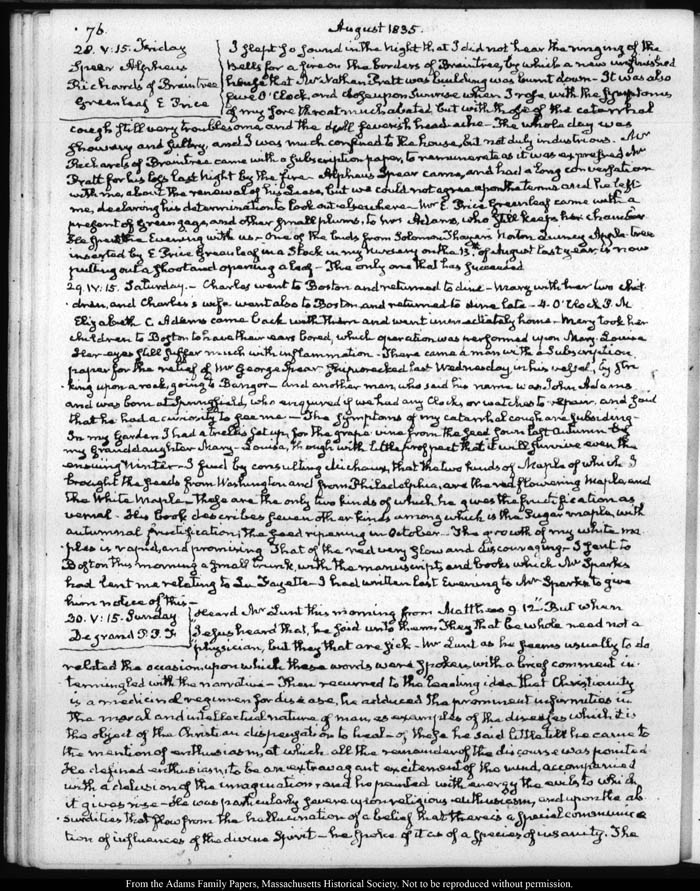 76.
August 1835.
28. V:15. Friday
Spear Alpheus
Richards of Braintree
Greenleaf E Price
I slept so sound in the night that I did not hear the ringing of the
bells for a fire on the borders of Braintree, by which a new unfinished
house that Mr Nathan Pratt was building was burnt down - It was also
five O'Clock, and close upon Sunrise when I rose with the symptoms
of my sore throat much abated but with those of the catarrhal
cough still very troublesome, and the dull feverish head-ache - The whole day was
showery and sultry, and I was much confined to the house, but not duly industrious. Mr
Richards of Braintree came with a subscription paper, to remunerate as it was expressed Mr
Pratt for his loss last Night by the fire - Alpheus Spear came, and had a long conversation
with me, about the renewal of his Lease, but we could not agree upon the terms and he left
me, declaring his determination to look out elsewhere - Mr E Price Greenleaf came with a
present of Greengage, and other small plums, to Mrs Adams, who still keeps her chamber
He spent the Evening with us - One of the buds from Solomon Thayer's Norton Quincy Apple-tree
inserted by E Price Greenleaf in a Stock in my Nursery on the 13th of August last year, is now
putting out a shoot and opening a leaf - The only one that has succeeded
29. IV:15. Saturday. - Charles went to Boston and returned to dine - Mary with her two chil-
dren, and Charles's wife went also to Boston and returned to dine late - 4. O'Clock P.M
Elizabeth C. Adams came back with them and went immediately home - Mary took her
children to Boston to have their ears bored, which operation was performed upon Mary-Louisa
Her eyes still suffer much with inflammation - There came a man with a Subscription
paper for the relief of Mr George Spear Shipwrecked last Wednesday in his vessel, by stri-
king upon a rock, going to Bangor - and another man, who said his name was John Adams
and was born at Springfield, who enquired if we had any Clocks or watches to repair, and said
that he had a curiosity to see me - The symptoms of my catarrhal cough are subsiding -
In my Garden I had a trellis set up, for the grape vine from the seed sown last Autumn by
my Granddaughter Mary-Louisa, though with little prospect that it will survive even the
ensuing Winter - I find by consulting Michaux, that the two kinds of Maple of which I
brought the seeds from Washington and from Philadelphia, are the red flowering Maple, and
the White Maple - These are the only two kinds of which he gives the fructification as
vernal - His book describes seven other kinds among which is the Sugar maple, with
autumnal fructification, the seed ripening in October - The growth of my white ma-
ples is rapid, and promising That of the red very slow and discouraging - I sent to
Boston this morning a small trunk, with the manuscripts and books which Mr Sparks
had lent me relating to La Fayette - I had written last Evening to Mr Sparks to give
him notice of this -
30. V:15. Sunday
Degrand P. P. F
Heard Mr Lunt this morning from Matthew 9. 12. But when
Jesus heard that, he said unto them, They that be whole need not a
physician, but they that are sick - Mr Lunt as he seems usually to do
related the occasion upon which these words were spoken, with a brief comment in-
termingled with the narrative - Then recurred to the leading idea that Christianity
is a medicinal regimen for disease, he adduced the prominent infirmities in
the moral and intellectual nature of man, as examples of the diseases which it is
the object of the Christian dispensation to heal - of these he said little till he came to
the mention of enthusiasm, at which all the remainder of the discourse was pointed
He defined enthusiasm, to be an extravagant excitement of the mind, accompanied
with a delusion of the imagination, and he painted with energy the evils to which
it gives rise - He was particularly severe upon religious enthusiasm, and upon the ab-
surdities that flow from the hallucination of a belief that there is a special communica-
tion of influences of the divine Spirit - he spoke of it as of a species of insanity. The
From the Adams Family Papers, Massachusetts Historical Society. Not to be reproduced without permission.